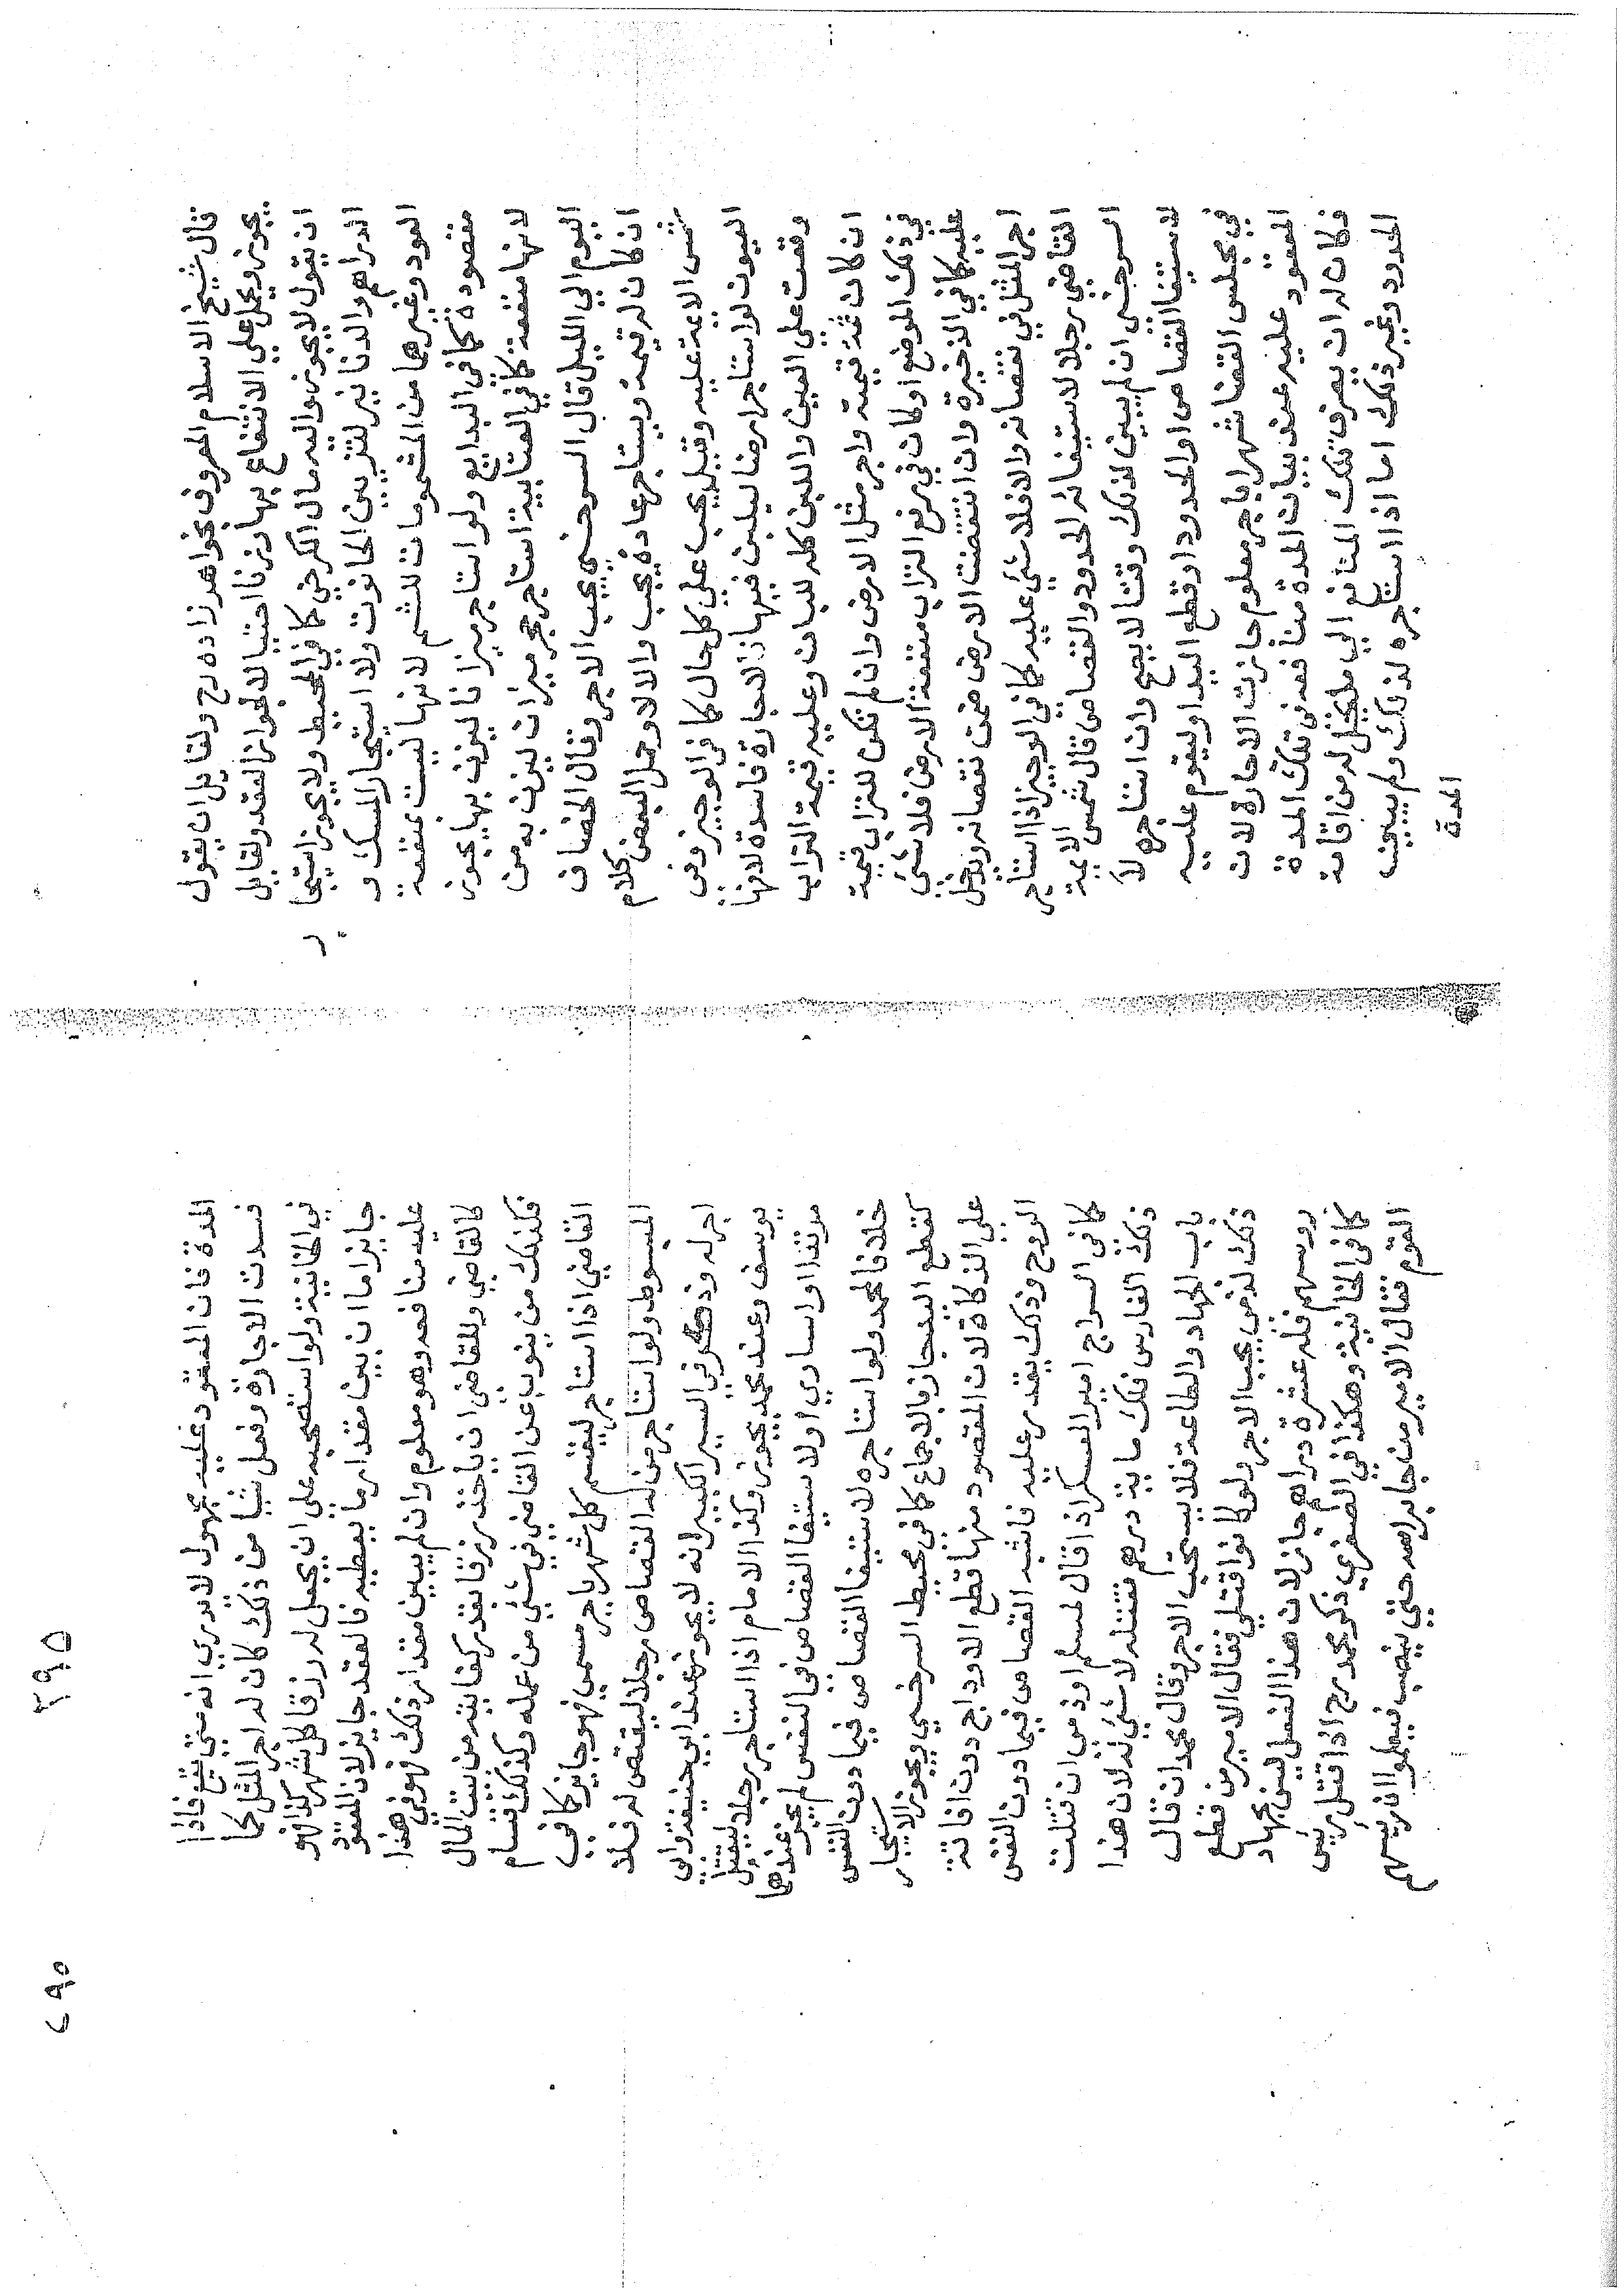 قال شيخ الاسلام المعروف بخواهرزاده رح ولقايل ان يقول
يجوز ويحمل علي الانتفاع بهاوزنا احتيالا لجواز العقد ولقايل
ان يقول لايجوز واليه مال الكرخي كما في المحيط ولا يجوز استيجا
ر
الدراهم والدنانير لتزيين الحانوت ولا استيجار المسك و
العود وغيرهما من المشمومات للشم لانها ليست بمنفعة
مقصودة كما في البدايع ولو استاجر ميزانا ليزن بها يجوز
لانها منفعة كما في العتابية استاجر حجر ميزان ليزن به من
اليوم الي الليل قال السرخسي يجب الاجر وقال الخصاف
ان كان له قيمة ويستاجر عادة يجب والا لا وحمل البعض كلام
شمس الايمة عليه وقيل يجب علي كل حال كما في الوجيز وفي
العيون لو استاجر ارضا ليلبن فيها فالاجارة فاسدة لانها
وقعت علي العين واللبن كله للبان وعليه قيمة التراب
ان كان ثمة قيمة واجر مثل الارض وان لم تكن للتراب قيمة
في ذلك الموضع او كان في رفع التراب منفعة الارض فلا شئ
عليه كما في الذخيرة وان انتقصت الارض ضمن نقصانه ويدخل
اجر المثل في نقصانه والا فلا شئ عليه كما في الوجيز اذا استاجر
القاضي رجلا لاستيفائه الحدود والقصاص قال شمس الايمة
السرخسي ان لم يبين لذلك وقتا لا يصح وان استاجره لا
لاستيفا القصاص او الحدود او قطع اليد او ليقوم عليه
في مجلس القضا شهرا باجر معلوم جازت الاجارة لان
المعقود عليه عند بيان المدة منافعه في تلك المدة
فكان له ان يصرف تلك المنافع الي ما يحتمل له من اقامة
الحدود وغير ذلك اما اذا استاجره لذلك ولم يبين
المدة
المدة فان المعقود عليه مجهول لا يدري انه متي يقع فاذا
فسدت الاجارة وفعل شيا من ذلك كان له اجر المثل كما
في الخانية ولو استصحبه علي ان يجعل له رزقا كل شهر كذا فهو
جايز اما ان بين مقدار ما يعطيه فالعقد جايز لان المعقود
عليه منافعه وهو معلوم وان لم يبين مقدار ذلك فهو في هذا
كالقاضي وللقاضي ان ياخذ رزقا بقدر كفايته من بيت المال
فكذلك من ينوب عن القاضي في شئ من عمله وكذلك قسام
القاضي اذا استاجر ليقسم كل شهر باجر مسمي فهو جايز كما في
المبسوط ولو استاجر من له القصاص رجلا ليقتص له فلا
اجر له وذكر في السير الكبير انه لا يجوز عند ابي حنيفة وابي
يوسف وعند محمد يجوز وكذا الامام اذا استاجر رجلا ليقتل
مرتدا او اساري او لاستيفا القصاص في النفس لم يجز عندهما
خلافا لمحمد ولو استاجره لاستيفا القصاص فيما دون النفس
كقطع اليد جاز بالاجماع كما في محيط السرخسي ويجوز الاستيجار
علي الذكاة لان المقصود منها قطع الاوداج دون افاتة
الروح وذلك يقدر عليه فاشبه القصاص فيما دون النفس
كما في السراج امير العسكر اذا قال لمسلم او ذمي ان قتلت
ذلك الفارس فلك ماية درهم فقتله لا شئ له لان هذا
باب الجهاد والطاعة فلا يستحق الاجر وقال محمد ان قال
ذلك لذمي يجب الاجر ولو كانوا قتلي فقال الامير من قطع
روسهم فله عشرة دراهم جاز لان هذا الفعل ليس بجهاد
كما في الخانية وهكذا في الصغري ذكر محمد رح اذا قتل رييس
القوم فقال الامير من جا براسه حتي ينصب فيعلموا ان رييسهم
٢٩٥
٢٩٥